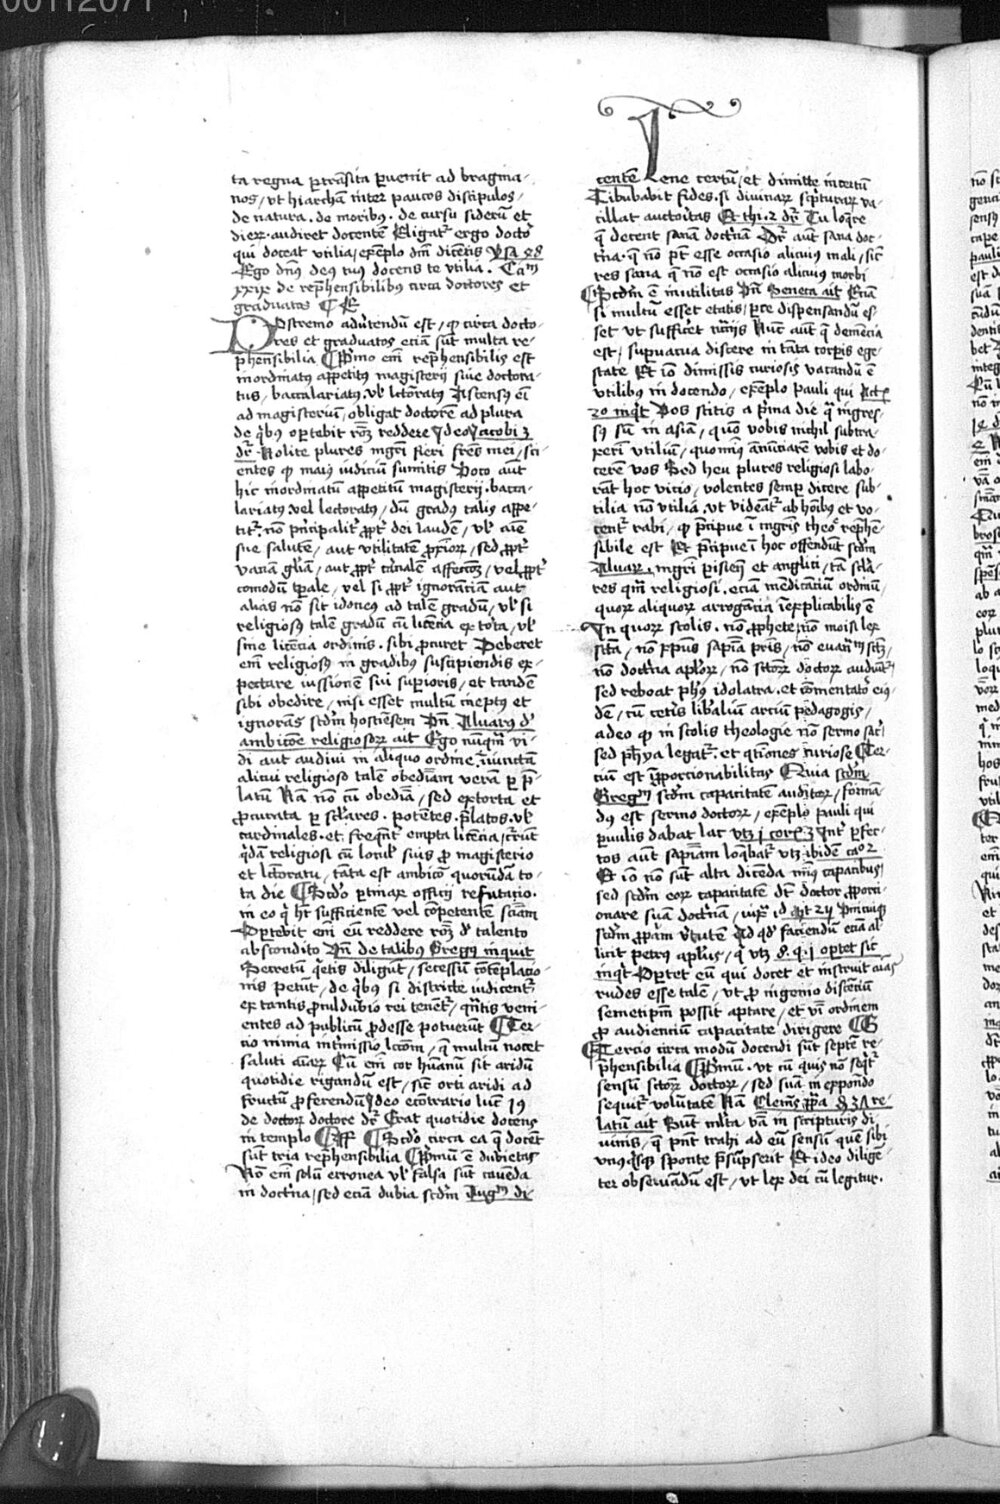 00112071
ta regna pertransita peruenit ad bragma-
nos, vt hiarcham inter paucos discipulos,
de natura. de moribus. de cursu siderum et
dierum. audiret docentem Eligatur ergo doctor
qui doceat vtilia, exemplo dm dicentis Ysa 48
Ego dns deus tuus docens te vtilia. Cam
xxix de reprehensibilibus circa doctores et
graduatos
Postremo aduertendum est, quod circa docto-
res et graduatos eciam sunt multa re-
phensibilia Primo enim reprehensibilis est
inordinatus appetitus magisterii siue doctora-
tus, baccalariatus, vel lectoratus Ascensus enim
ad magisterium, obligat doctorem ad plura
de quibus oportebit rationem reddere Ideo Jacobi 3
dr. Nolite plures mgri fieri fres mei, sci-
entes quod maius iudicium sumitis Voco aut
hic inordinatum appetitum magisterii. bacca-
lariatus vel lectoratus, dum gradus talis appe-
titur. non principaliter propter dei laudem, vel anime
sue salutem, aut vtilitatem proximorum, sed propter
vanam gloriam, aut propter carnalem affectionem, vel propter
comodum temporale, vel si propter ignoranciam aut
alias non sit idoneus ad talem gradum, vel si
religiosus talem gradum cum licencia extorta, vel
sine licencia ordinis. sibi procuret Deberet
enim religiosus in gradibus suscipiendis ex-
pectare iussionem sui superioris, et tandem
sibi obedire, nisi esset multum ineptus et
ignorans secundum hostiensem Vn Aluarus de
ambicione religiosorum ait Ego nunquam vi-
di aut audiui in aliquo ordine iniunctam
alicui religioso talem obedienciam veram per pre-
latum Nam non cum obediencia, sed extorta et
procurata per seculares. potentes. prelatos. vel
cardinales. et. frequenter empta licencia, currunt
quidam religiosi cum loculis suis pro magisterio
et lectoratu, tanta est ambicio quorundam to-
ta die Secundo pertinax officii refutacio.
in eo qui habet sufficientem vel competentem scienciam
Oportebit enim eum reddere rationem de talento
abscondito Vn de talibus Gregus inquit
Secretum quietis diligunt, secessum contemplacio-
nis petunt, de quibus si districte iudicentur
ex tantis proculdubio rei tenentur, quantis veni-
entes ad publicum prodesse potuerunt Ter-
cio nimia intermissio lectionum, que multum nocet
saluti animarum Cum enim cor humanum sit aridum
quotidie rigandum est, sicut orti aridi ad
fructum proferendum Ideo econtrario luce 19
de doctorum doctore dr Erat quotidie docens
in templo Secundo circa ea que docent
sunt tria reprehensibilia Primum est dubietas
Non enim solum erronea vel falsa sunt cauenda
in doctrina, sed eciam dubia secundum Augm di-
centem Tene certum, et dimitte incertum
Titubabit fides, si diuinarum scripturarum va-
cillat auctoritas Et thi. 2 dr Tu loquere
que decent sanam doctrinam Dr aut sana doc-
trina. que non potest esse occasio alicuius mali, sicut
res sana que non est occasio alicuius morbi
Secundum est inutilitas Vn Seneca ait Eciam
si multum esset etatis, parce dispensandum es-
set vt sufficeret necessariis Nunc aut que demencia
est, superuacua discere in tanta temporis ege-
state Et ideo dimissis curiosis vacandum est
vtilibus in docendo, exemplo pauli qui Act
20 inquit Vos scitis a prima die qua ingres-
sus sum in asiam, quomodo vobis nichil subtra-
xerim vtilium, quominus annunciarem vobis et do-
cerem vos Sed heu plures religiosi labo-
rant hoc vicio, volentes semper dicere sub-
tilia non vtilia, vt videantur ab hominibus et vo-
centur rabi, quod precipue in magistris theologie reprehen-
sibile est Et precipue in hoc offendunt secundum
Aluarum, mgri parisienses et anglici, tam secula-
res quam religiosi. eciam mendicancium ordinum,
quorum aliquorum arrogancia inexplicabilis est
In quorum scolis. non prophete, non moisi lex
sancta, non christus sapiencia patris, non euangelium sanctum,
non doctrina apostolorum, non sanctorum doctorum auditur,
sed reboat philosophus idolatra. et commentator eius-
dem, cum ceteris liberalium arcium pedagogis,
adeo quod in scolis theologie non sermo sacer
sed philosophia legatur. et questiones curiose Ter-
cium est improporcionabilitas Quia secundum
Gregm secundum capacitatem auditorum, forman-
dus est sermo doctorum, exemplo pauli qui
paruulis dabat lac vtz j cor 3 Inter perfec-
tos aut sapienciam loquebatur vtz ibidem cao 2
Et ideo non sunt alta dicenda minus capacibus,
sed secundum eorum capacitatem debet doctor proporci-
onare suam doctrinam, iuxta id Mt 25 Vnicuique
secundum propriam virtutem Ad quod faciendum eciam al-
licit petrus aplus, qui vtz 8. q. j oportet sic
inquit Oportet eum qui docet et instruit animas
rudes esse talem, vt pro ingenio discencium
semetipsum possit aptare, et verbi ordinem
pro audiencium capacitate dirigere
Tercio circa modum docendi sunt septem re-
phensibilia Primum. vt cum quis non sequitur
sensum sanctorum doctorum, sed suam in exponendo
sequitur voluntatem Nam Clemens papa d 37 re-
latum ait Sunt multa verba in scripturis di-
uinis, que possunt trahi ad eum sensum quem sibi
vnusquisque sponte presumpserit Et ideo diligen-
ter obseruandum est, vt lex dei cum legitur.